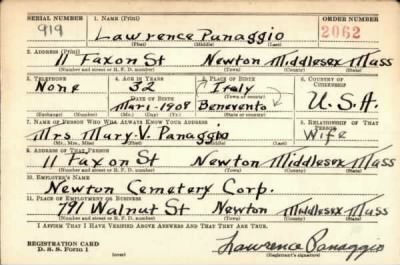 SERIAL NUMBER 1. NAME (Print) ORDER NUMBER
919 Lawrence Panaggio 2062
(First) (Middle) (Last)
2. ADDRESS (Print)
11 Faxon St Newton Middlesex Mass
(Number and street or R. F. D. number) (Town) (County) (State)
3. TELEPHONE 4. AGE IN YEARS 5. PLACE OF BIRTH 6. COUNTRY OF CITIZENSHIP
None 32 Italy
DATE OF BIRTH (Town or county)
Mar-1-1908 Benevento U.S.A.
(Exchange) (Number) (Mo.) (Day) (Yr.) (State or country)
7. NAME OF PERSON WHO WILL ALWAYS KNOW YOUR ADDRESS 8. RELATIONSHIP OF THAT PERSON
Mrs Mary V. Panaggio Wife
(Mr., Mrs., Miss) (First) (Middle) (Last)
9. ADDRESS OF THAT PERSON
11 Faxon St Newton Middlesex Mass
(Number and street or R. F. D. number) (Town) (County) (State)
10. EMPLOYER'S NAME
Newton Cemetery Corp.
11. PLACE OF EMPLOYMENT OR BUSINESS
791 Walnut St Newton Middlesex Mass
(Number and street or R. F. D. number) (Town) (County) (State)
I AFFIRM THAT I HAVE VERIFIED ABOVE ANSWERS AND THAT THEY ARE TRUE.
REGISTRATION CARD
D. S. S. Form 1 (over) Lawrence Panaggio
(Registrant's signature)